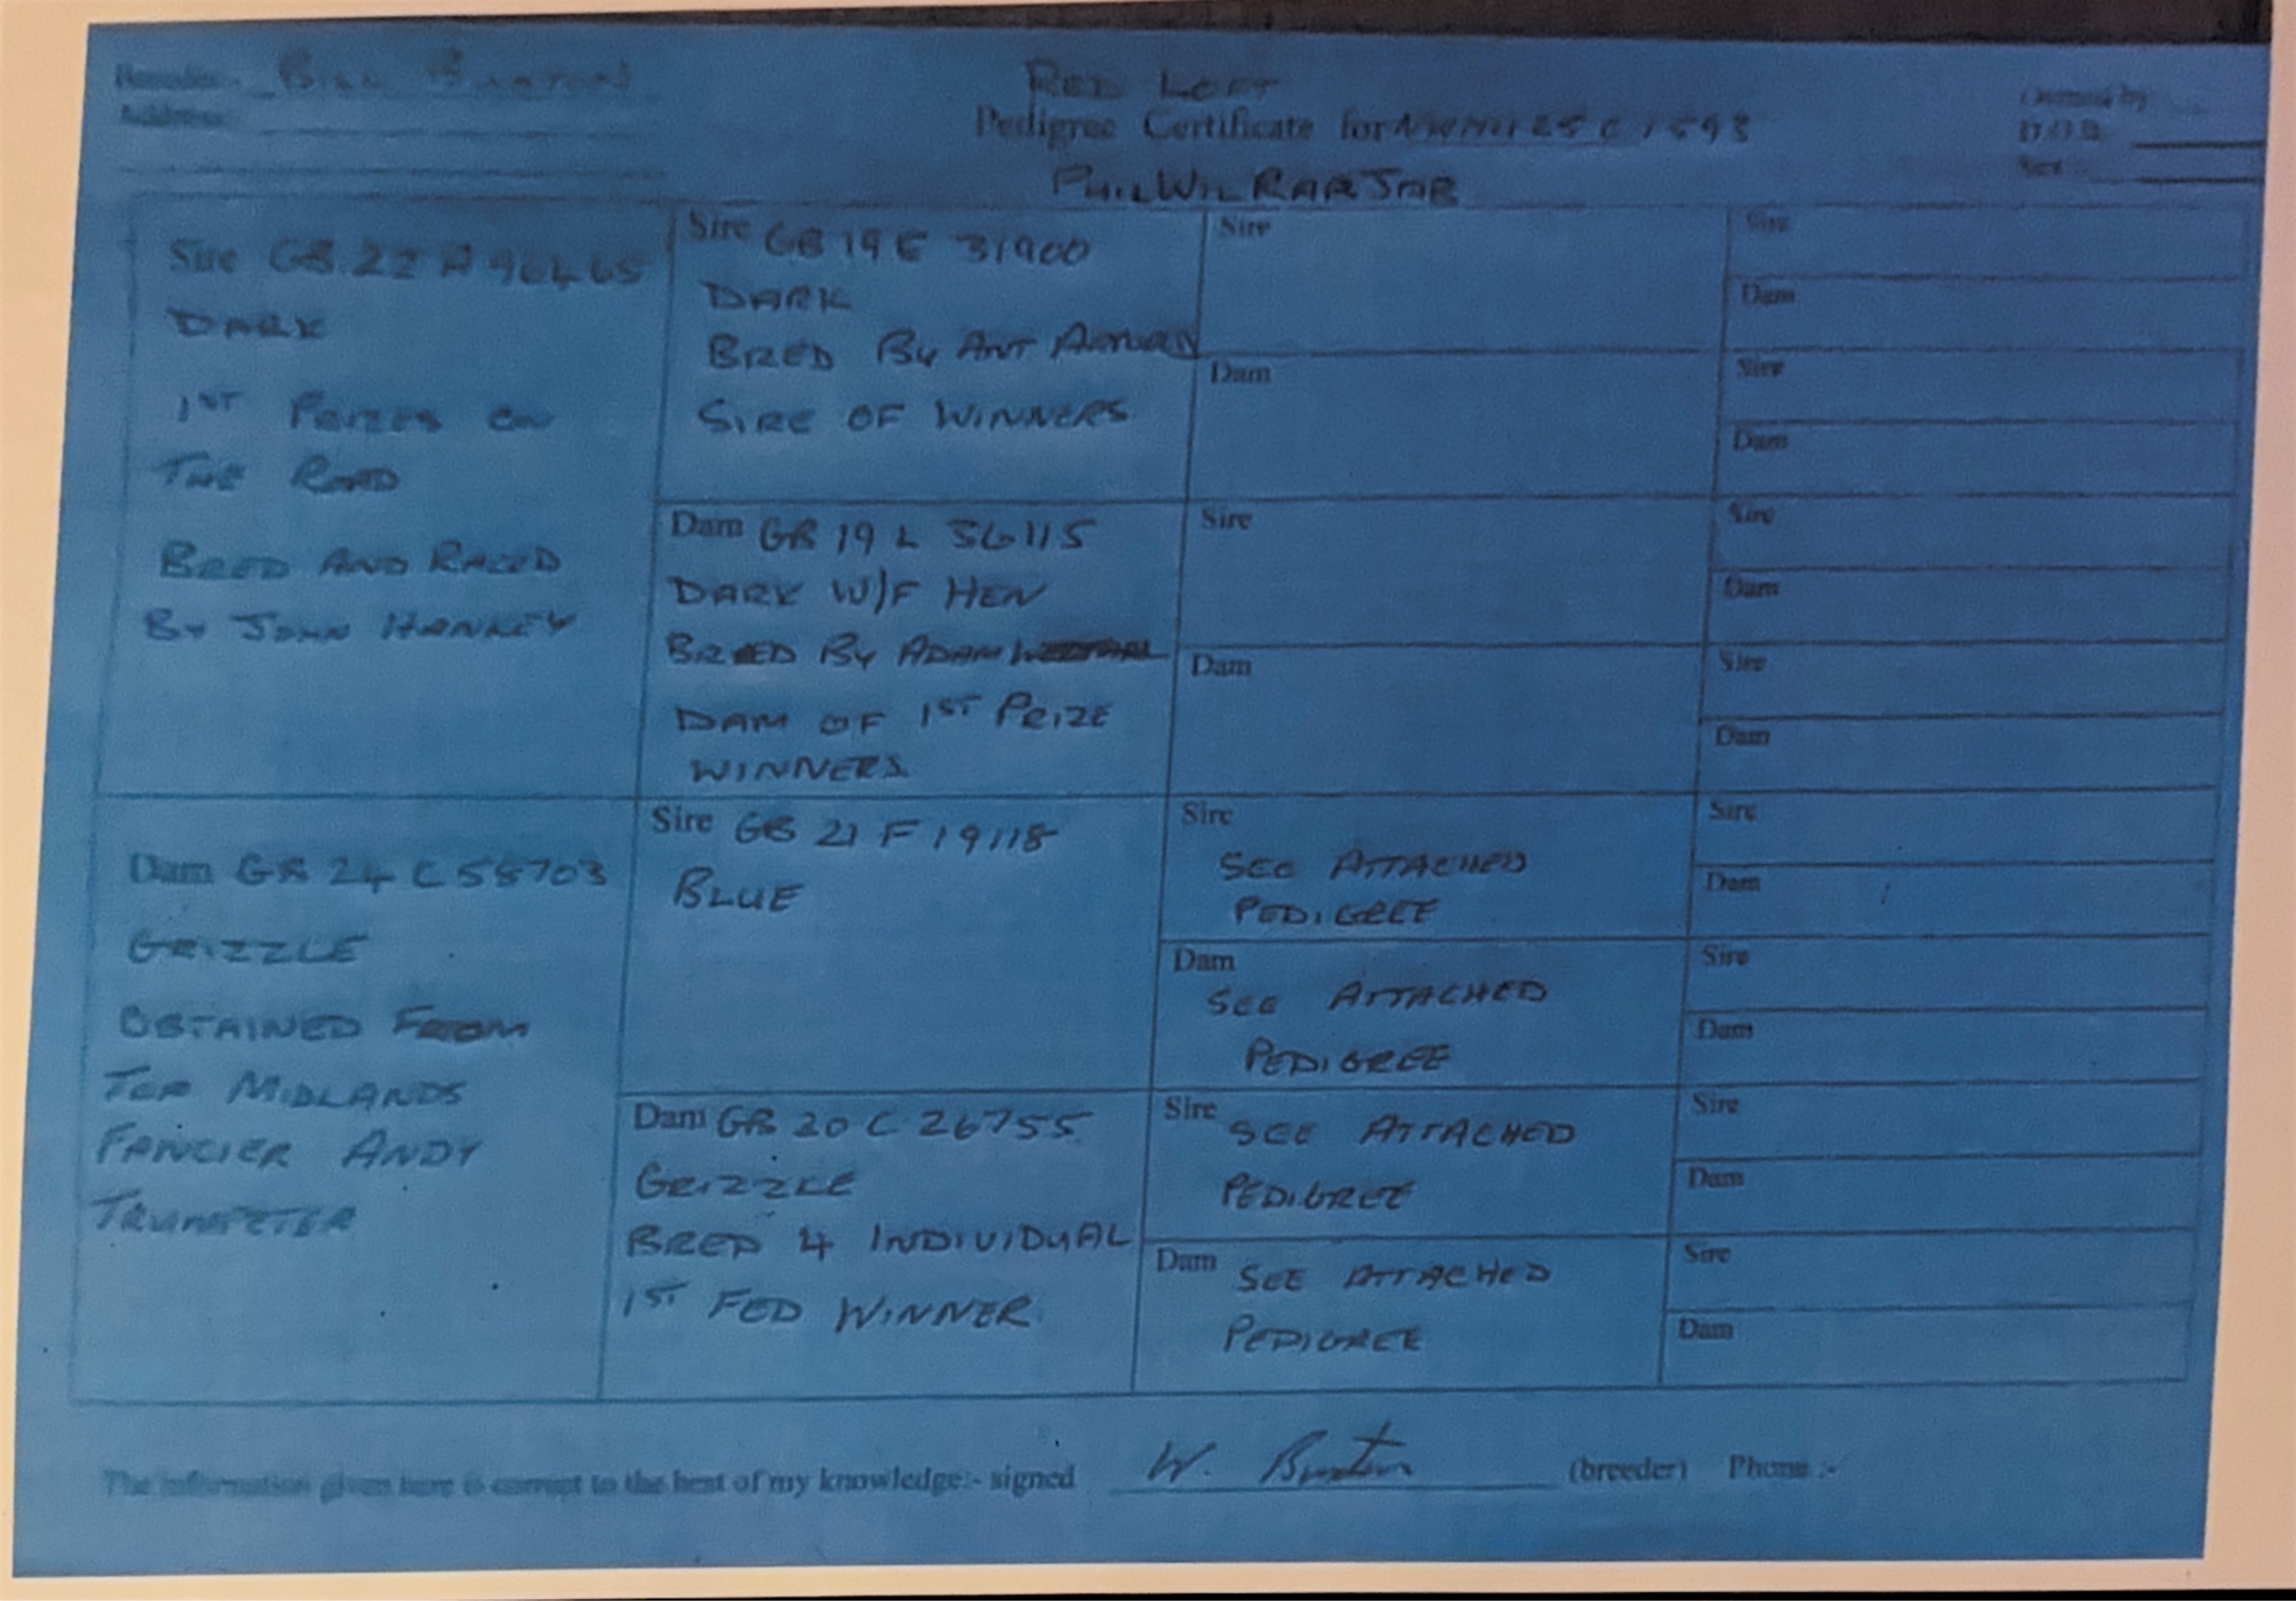 Breeder:- BILL BUXTON
Address:
RED LOFT
Pedigree Certificate for NWHU 25 C 1593
PHILWILRARJAR
Owned by
D.O.B.
Sex :-
Sire GB 22 A 96465
DARK
1ST PRIZES ON
THE ROAD
BRED AND RACED
BY JOHN HANKEY
Dam GB 24 C 55703
GRIZZLE
OBTAINED FROM
TOP MIDLANDS
FANCIER ANDY
TRUMPETER
Sire GB 19 E 31900
DARK
BRED By ANT
SIRE OF WINNERS
Dam GB 19 L 36115
DARK W/F HEN
BRED By ADAM
DAM OF 1ST PRIZE
WINNERS
Sire GB 21 F 19118
BLUE
Dam GB 20 C 26755
GRIZZLE
BRED 4 INDIVIDUAL
1ST FED WINNER.
Sire
Dam
Sire
Dam
Sire
SEE ATTACHED
PEDIGREE
Dam
SEE ATTACHED
PEDIGREE
Sire SEE ATTACHED
PEDIGREE
Dam SEE ATTACHED
PEDIGREE
Sire
Dam
Sire
Dam
Sire
Dam
Sire
Dam
Sire
Dam
Sire
Dam
Sire
Dam
Sire
Dam
The information given here is correct to the best of my knowledge:- signed W. Buxton (breeder) Phone :-